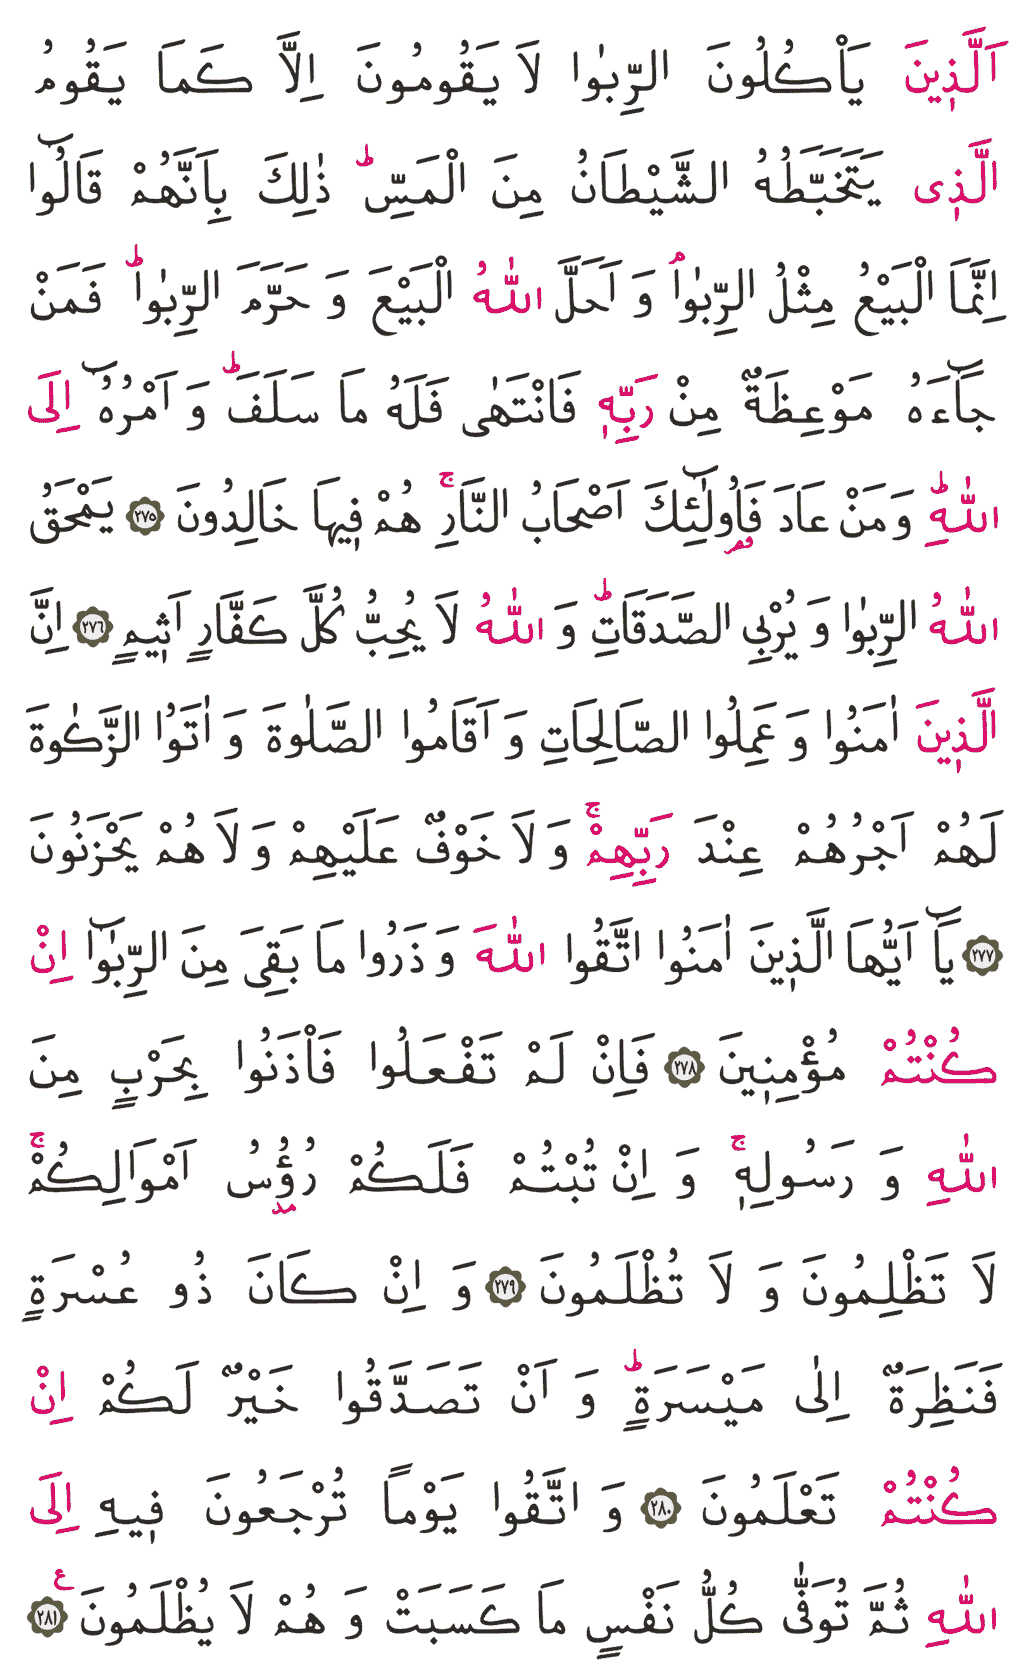 اَلَّذ۪ينَ يَاْكُلُونَ الرِّبٰوا لَا يَقُومُونَ اِلَّا كَمَا يَقُومُ
الَّذ۪ى يَتَخَبَّطُهُ الشَّيْطَانُ مِنَ الْمَسِّۜ ذٰلِكَ بِاَنَّهُمْ قَالُٓوا
اِنَّمَا الْبَيْعُ مِثْلُ الرِّبٰواۢ وَ اَحَلَّ اللّٰهُ الْبَيْعَ وَ حَرَّمَ الرِّبٰواۜ فَمَنْ
جَٓاءَهُ مَوْعِظَةٌ مِنْ رَبِّه۪ فَانْتَهٰى فَلَهُ مَا سَلَفَۜ وَ اَمْرُهُٓ اِلَى
اللّٰهِۜ وَمَنْ عَادَ فَاُو۬لٰٓئِكَ اَصْحَابُ النَّارِۚ هُمْ ف۪يهَا خَالِدُونَ ﴿٢٧٥﴾ يَمْحَقُ
اللّٰهُ الرِّبٰوا وَ يُرْبِي الصَّدَقَاتِۜ وَ اللّٰهُ لَا يُحِبُّ كُلَّ كَفَّارٍ اَث۪يمٍ ﴿٢٧٦﴾ اِنَّ
الَّذ۪ينَ اٰمَنُوا وَ عَمِلُوا الصَّالِحَاتِ وَ اَقَامُوا الصَّلٰوةَ وَ اٰتَوُا الزَّكٰوةَ
لَهُمْ اَجْرُهُمْ عِنْدَ رَبِّهِمْۚ وَ لَا خَوْفٌ عَلَيْهِمْ وَ لَا هُمْ يَحْزَنُونَ
﴿٢٧٧﴾ يَٓا اَيُّهَا الَّذ۪ينَ اٰمَنُوا اتَّقُوا اللّٰهَ وَ ذَرُوا مَا بَقِىَ مِنَ الرِّبٰٓوا اِنْ
كُنْتُمْ مُؤْمِن۪ينَ ﴿٢٧٨﴾ فَاِنْ لَمْ تَفْعَلُوا فَاْذَنُوا بِحَرْبٍ مِنَ
اللّٰهِ وَ رَسُولِه۪ۚ وَ اِنْ تُبْتُمْ فَلَكُمْ رُؤُ۫سُ اَمْوَالِكُمْۚ
لَا تَظْلِمُونَ وَ لَا تُظْلَمُونَ ﴿٢٧٩﴾ وَ اِنْ كَانَ ذُو عُسْرَةٍ
فَنَظِرَةٌ اِلٰى مَيْسَرَةٍۜ وَ اَنْ تَصَدَّقُوا خَيْرٌ لَكُمْ اِنْ
كُنْتُمْ تَعْلَمُونَ ﴿٢٨٠﴾ وَ اتَّقُوا يَوْمًا تُرْجَعُونَ ف۪يهِ اِلَى
اللّٰهِ ثُمَّ تُوَفّٰى كُلُّ نَفْسٍ مَا كَسَبَتْ وَ هُمْ لَا يُظْلَمُونَ ع ﴿٢٨١﴾